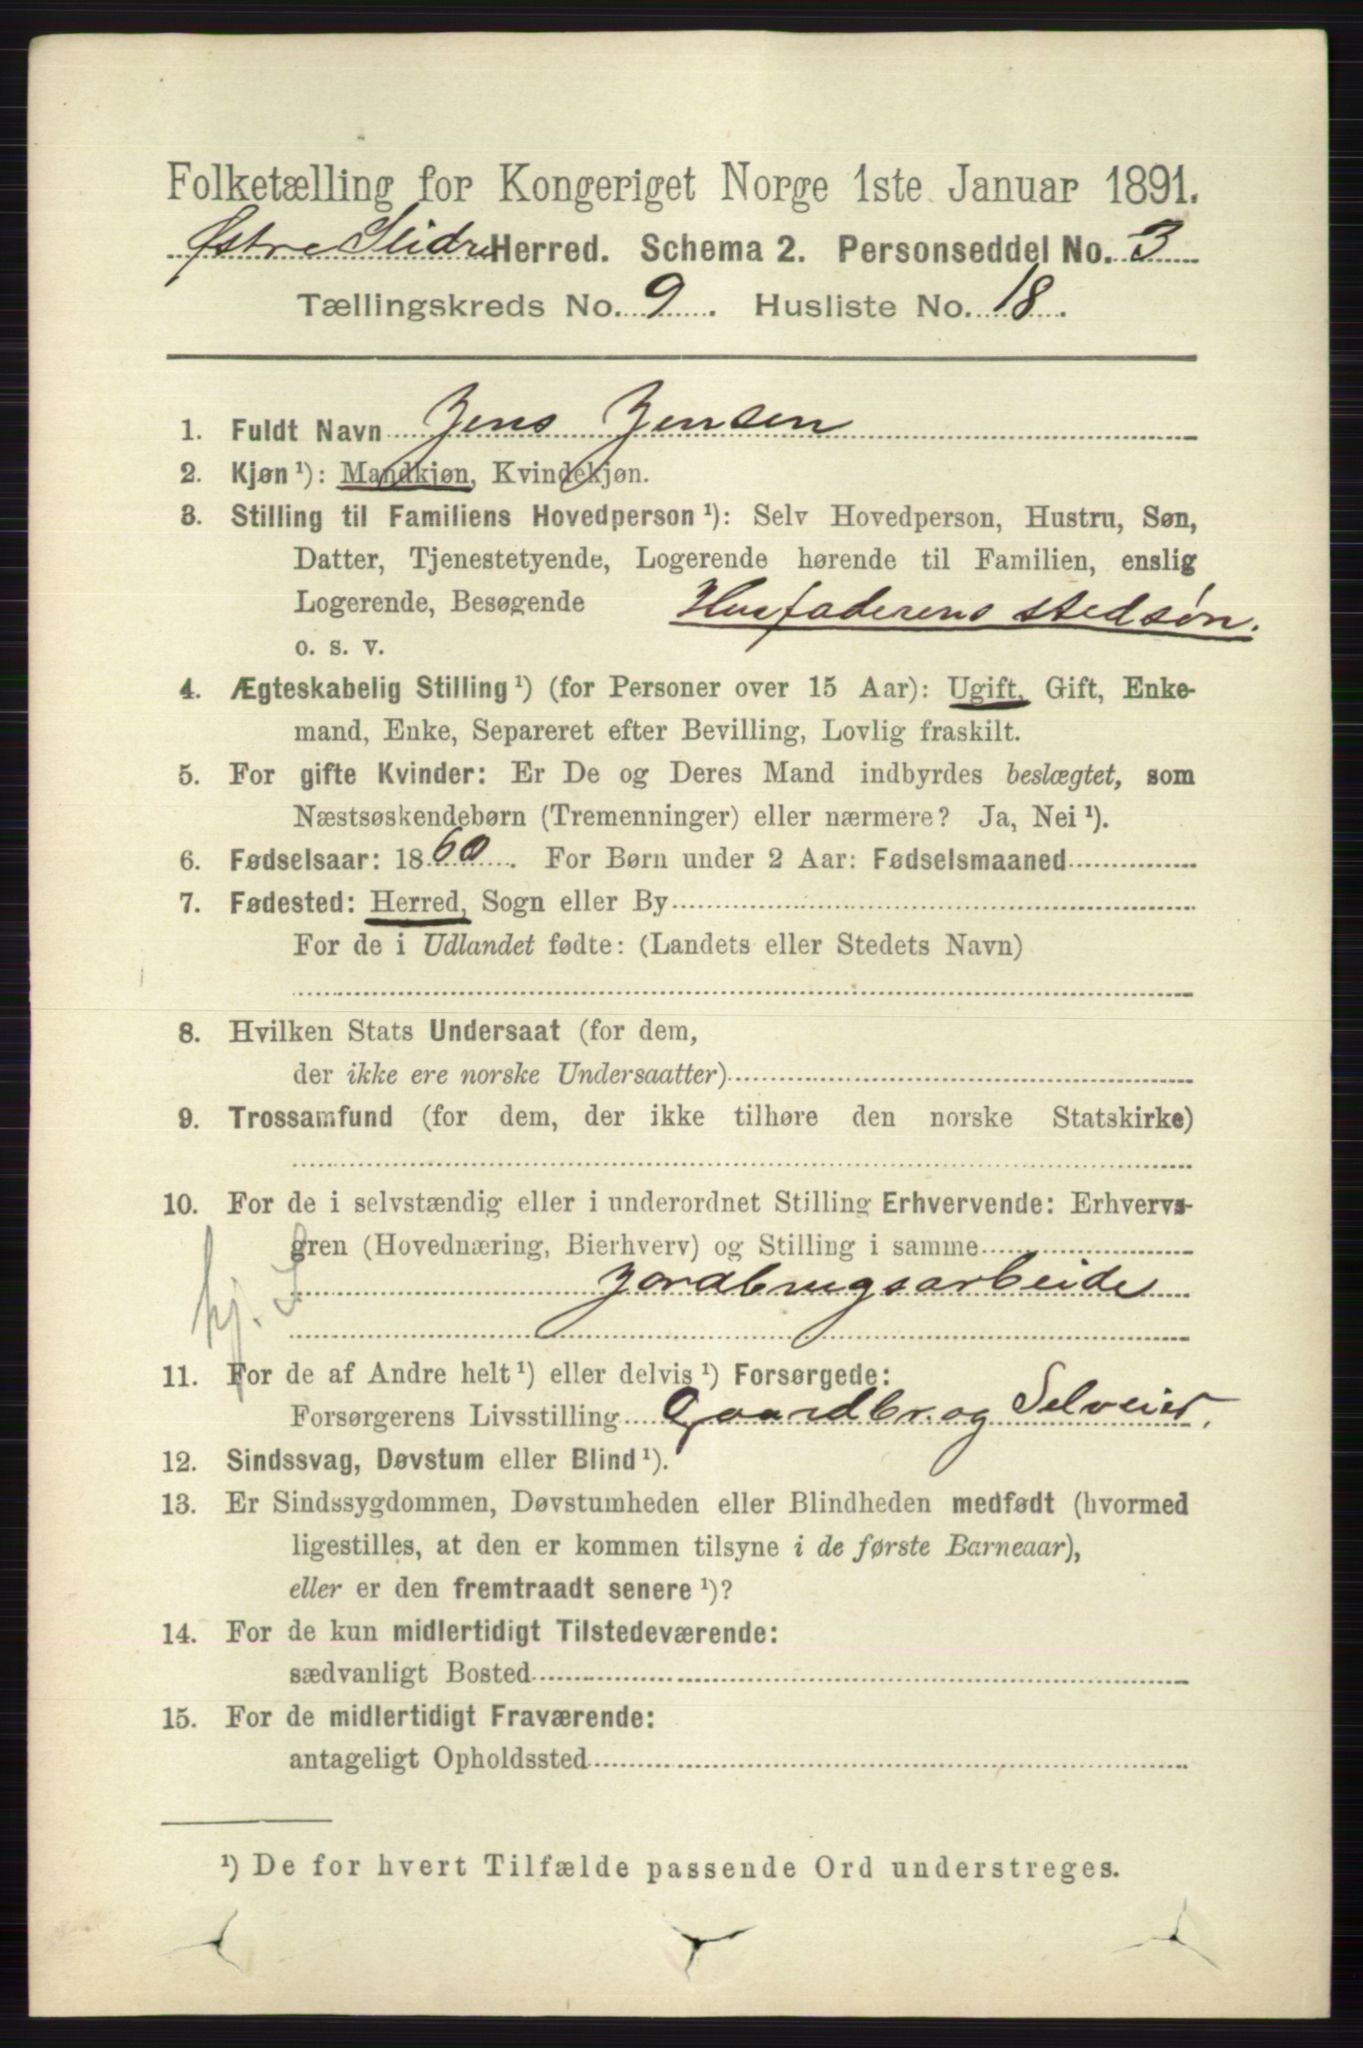 Folketælling for Kongeriget Norge 1ste Januar 1891.
Østre Slidre Herred. Schema 2. Personseddel No. 3
Tællingskreds No. 9. Husliste No. 18.
1. Fuldt Navn Jens Jensen
2. Kjøn ¹): Mandkjøn, Kvindekjøn.
3. Stilling til Familiens Hovedperson ¹): Selv Hovedperson, Hustru, Søn,
Datter, Tjenestetyende, Logerende hørende til Familien, enslig
Logerende, Besøgende Husfaderens stedsøn.
o. s. v.
4. Ægteskabelig Stilling ¹) (for Personer over 15 Aar): Ugift, Gift, Enke-
mand, Enke, Separeret efter Bevilling, Lovlig fraskilt.
5. For gifte Kvinder: Er De og Deres Mand indbyrdes beslægtet, som
Næstsøskendebørn (Tremenninger) eller nærmere? Ja, Nei ¹).
6. Fødselsaar: 1860. For Børn under 2 Aar: Fødselsmaaned
7. Fødested: Herred, Sogn eller By
For de i Udlandet fødte: (Landets eller Stedets Navn)
8. Hvilken Stats Undersaat (for dem,
der ikke ere norske Undersaatter)
9. Trossamfund (for dem, der ikke tilhøre den norske Statskirke)
10. For de i selvstændig eller i underordnet Stilling Erhvervende: Erhvervs-
gren (Hovednæring, Bierhverv) og Stilling i samme
Jordbrugsarbeide
11. For de af Andre helt ¹) eller delvis ¹) Forsørgede:
Forsørgerens Livsstilling Gaardbr. og Selveier.
12. Sindssvag, Døvstum eller Blind ¹).
13. Er Sindssygdommen, Døvstumheden eller Blindheden medfødt (hvormed
ligestilles, at den er kommen tilsyne i de første Barneaar),
eller er den fremtraadt senere ¹)?
14. For de kun midlertidigt Tilstedeværende:
sædvanligt Bosted
15. For de midlertidigt Fraværende:
antageligt Opholdssted
¹) De for hvert Tilfælde passende Ord understreges.